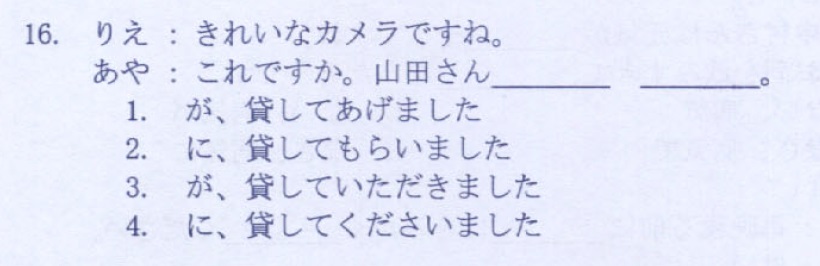 16. りえ : きれいなカメラですね。
あや : これですか。山田さん________ ________。
1. が、貸してあげました
2. に、貸してもらいました
3. が、貸していただきました
4. に、貸してくださいました